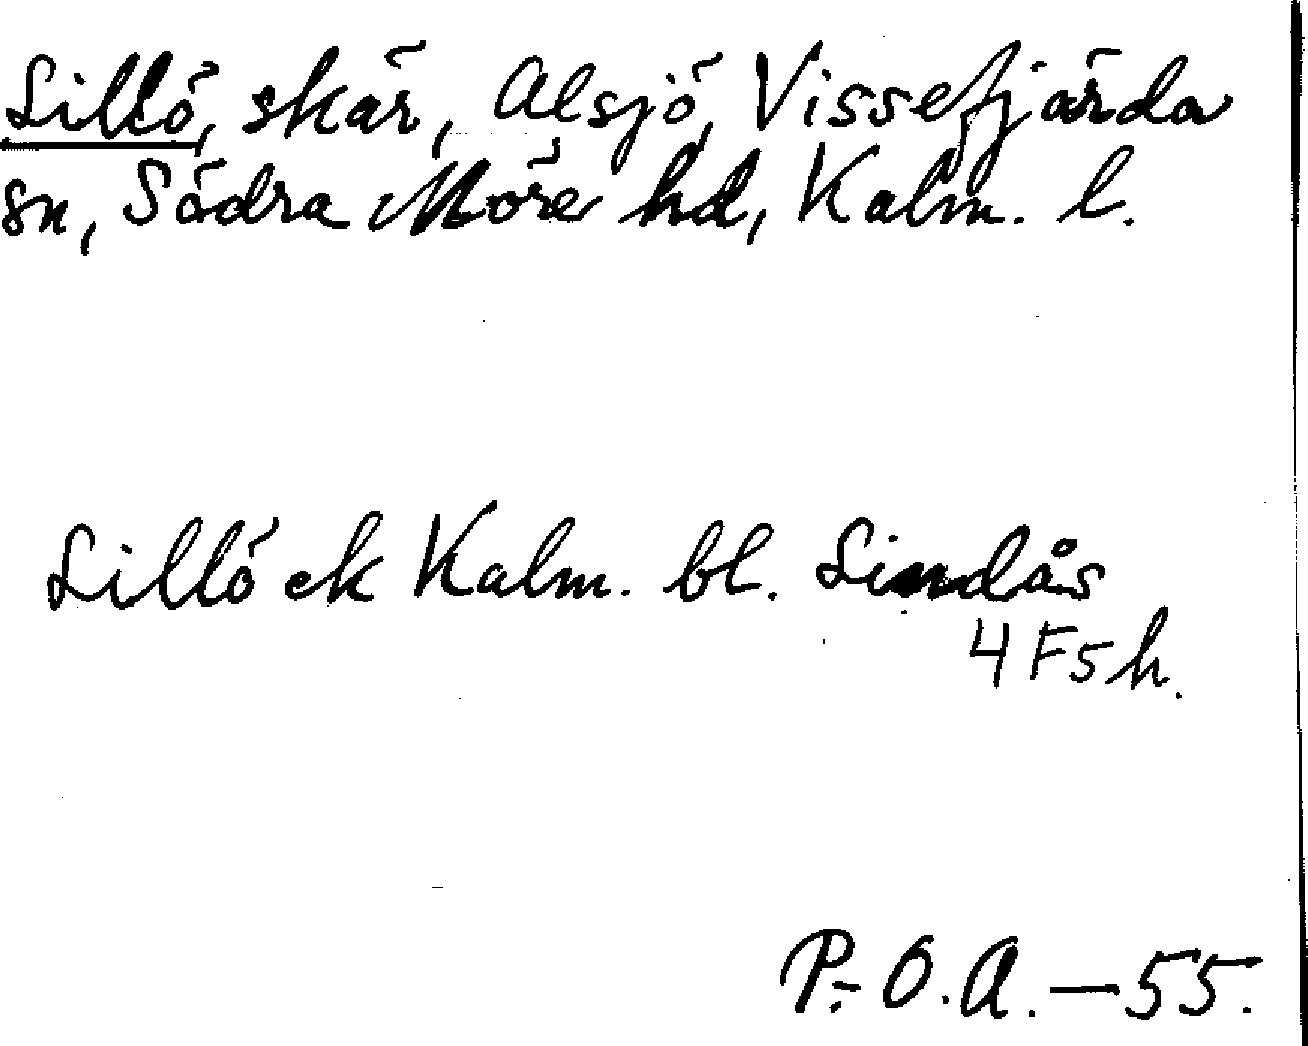 Lillö, skär, Alsjö, Vissefjärda
sn, Södra Möre hd, Kalm. l.
Lillö ek Kalm. bl. Lindås
4 F 5 h.
P.-O.A.—55.